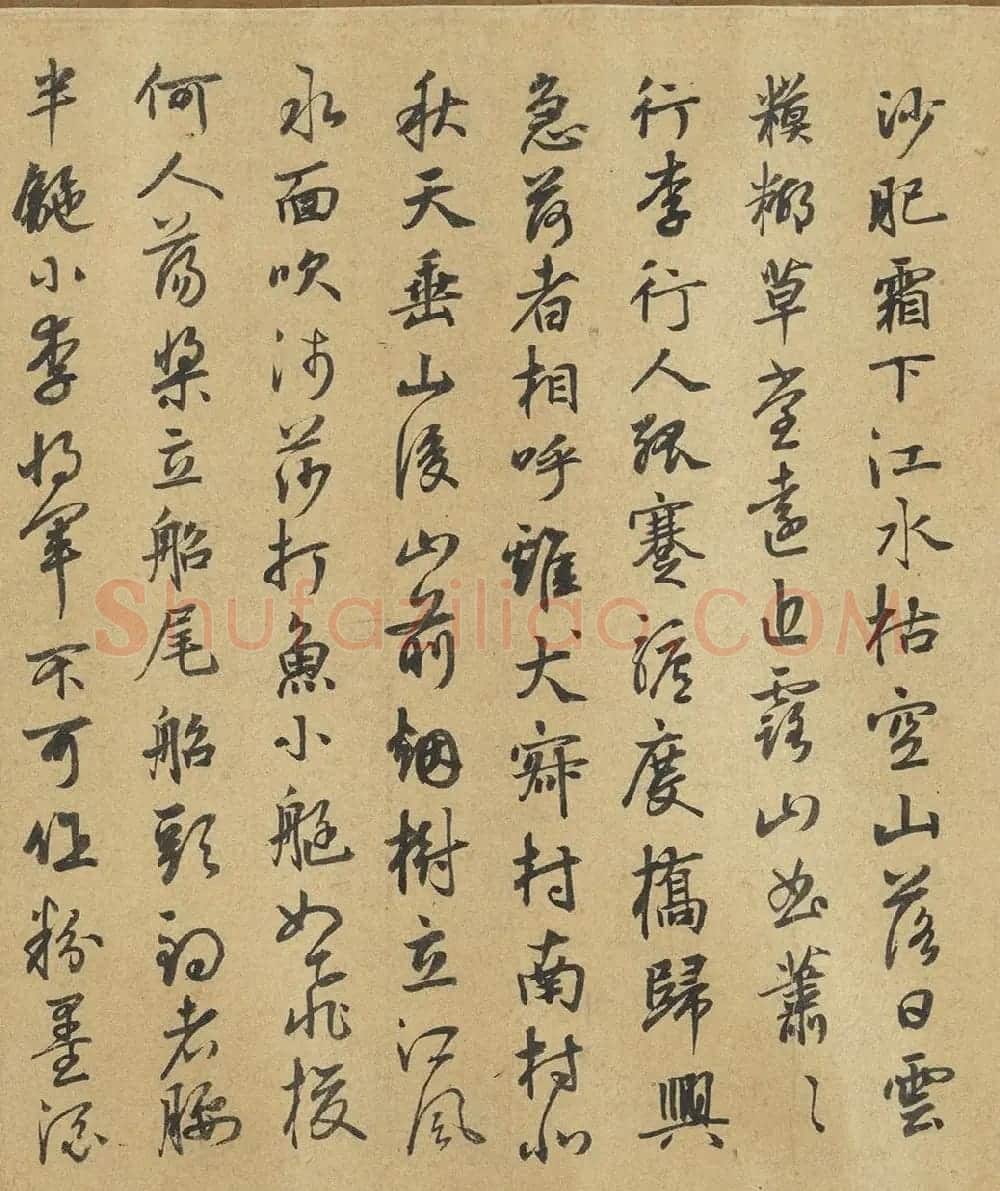 沙肥霜下江水枯空山落日雲
糢糊草堂遠近露山蕭〻
行李行人蹇驢度橋歸興
急荷者相呼雞犬寂村南村北
秋天垂山後山前烟樹立江風
水面吹莎打魚小艇如飛梭
何人蕩槳立船尾船頭老腰
半小李將軍不可作粉墨
Shufaziliao.COM